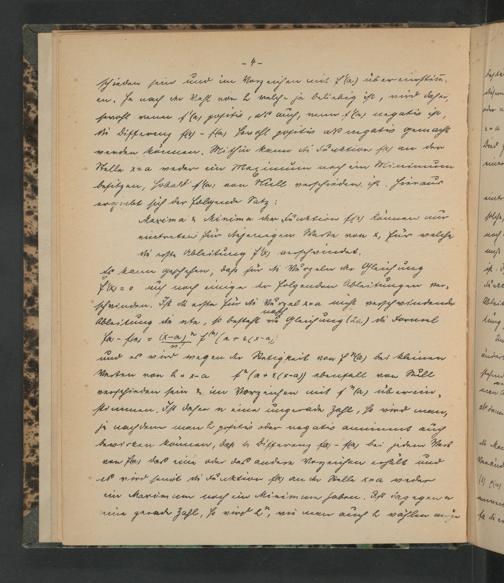 - 4 -
schieden sein und im Vorzeichen mit f'(a) übereinstim-
men. Je nach der Wahl von h welch- ja beliebig ist, wird daher,
sowohl wenn f'(a) positiv, als auch, wenn f'(a) negativ ist,
die Differenz f(x) - f(a) sowohl positiv als negativ gemacht
werden können. Mithin kann die Funktion f(x) an der
Stelle x=a weder ein Maximum noch ein Minimum
besitzen, sobald f'(a) von Null verschieden ist. Hieraus
ergiebt sich der folgende Satz:
Maxima & Minima der Funktion f(x) können nur
eintreten für diejenigen Werte von x, für welche
die erste Ableitung f'(x) verschwindet.
Es kann geschehen, daß für die Wurzeln der Gleichung
f'(x) = 0 auch noch einige der folgenden Ableitungen ver-
schwinden. Ist die erste für die Wurzel x=a nicht verschwindende
Ableitung die nte, so besteht nach Gleichung (2a.) die Formel
f(x) - f(a) = (x-a)^n / n! f^(n) (a + ε(x-a))
und es wird wegen der Stetigkeit von f^n(x) bei kleinen
Werten von h = x-a f^n (a + ε(x-a)) ebenfalls von Null
verschieden sein & im Vorzeichen mit f^n(a) überein-
stimmen. Ist daher n eine ungerade Zahl, so wird man,
je nachdem man h positiv oder negativ annimmt auch
bewirken können, daß die Differenz f(x) - f(a) bei jedem Werte
von f^n(a) das eine oder das andere Vorzeichen erhält und
es wird somit die Funktion f(x) an der Stelle x=a weder
ein Maximum noch ein Minimum haben. Ist dagegen n
eine gerade Zahl, so wird h^n, wie man auch h wählen möge